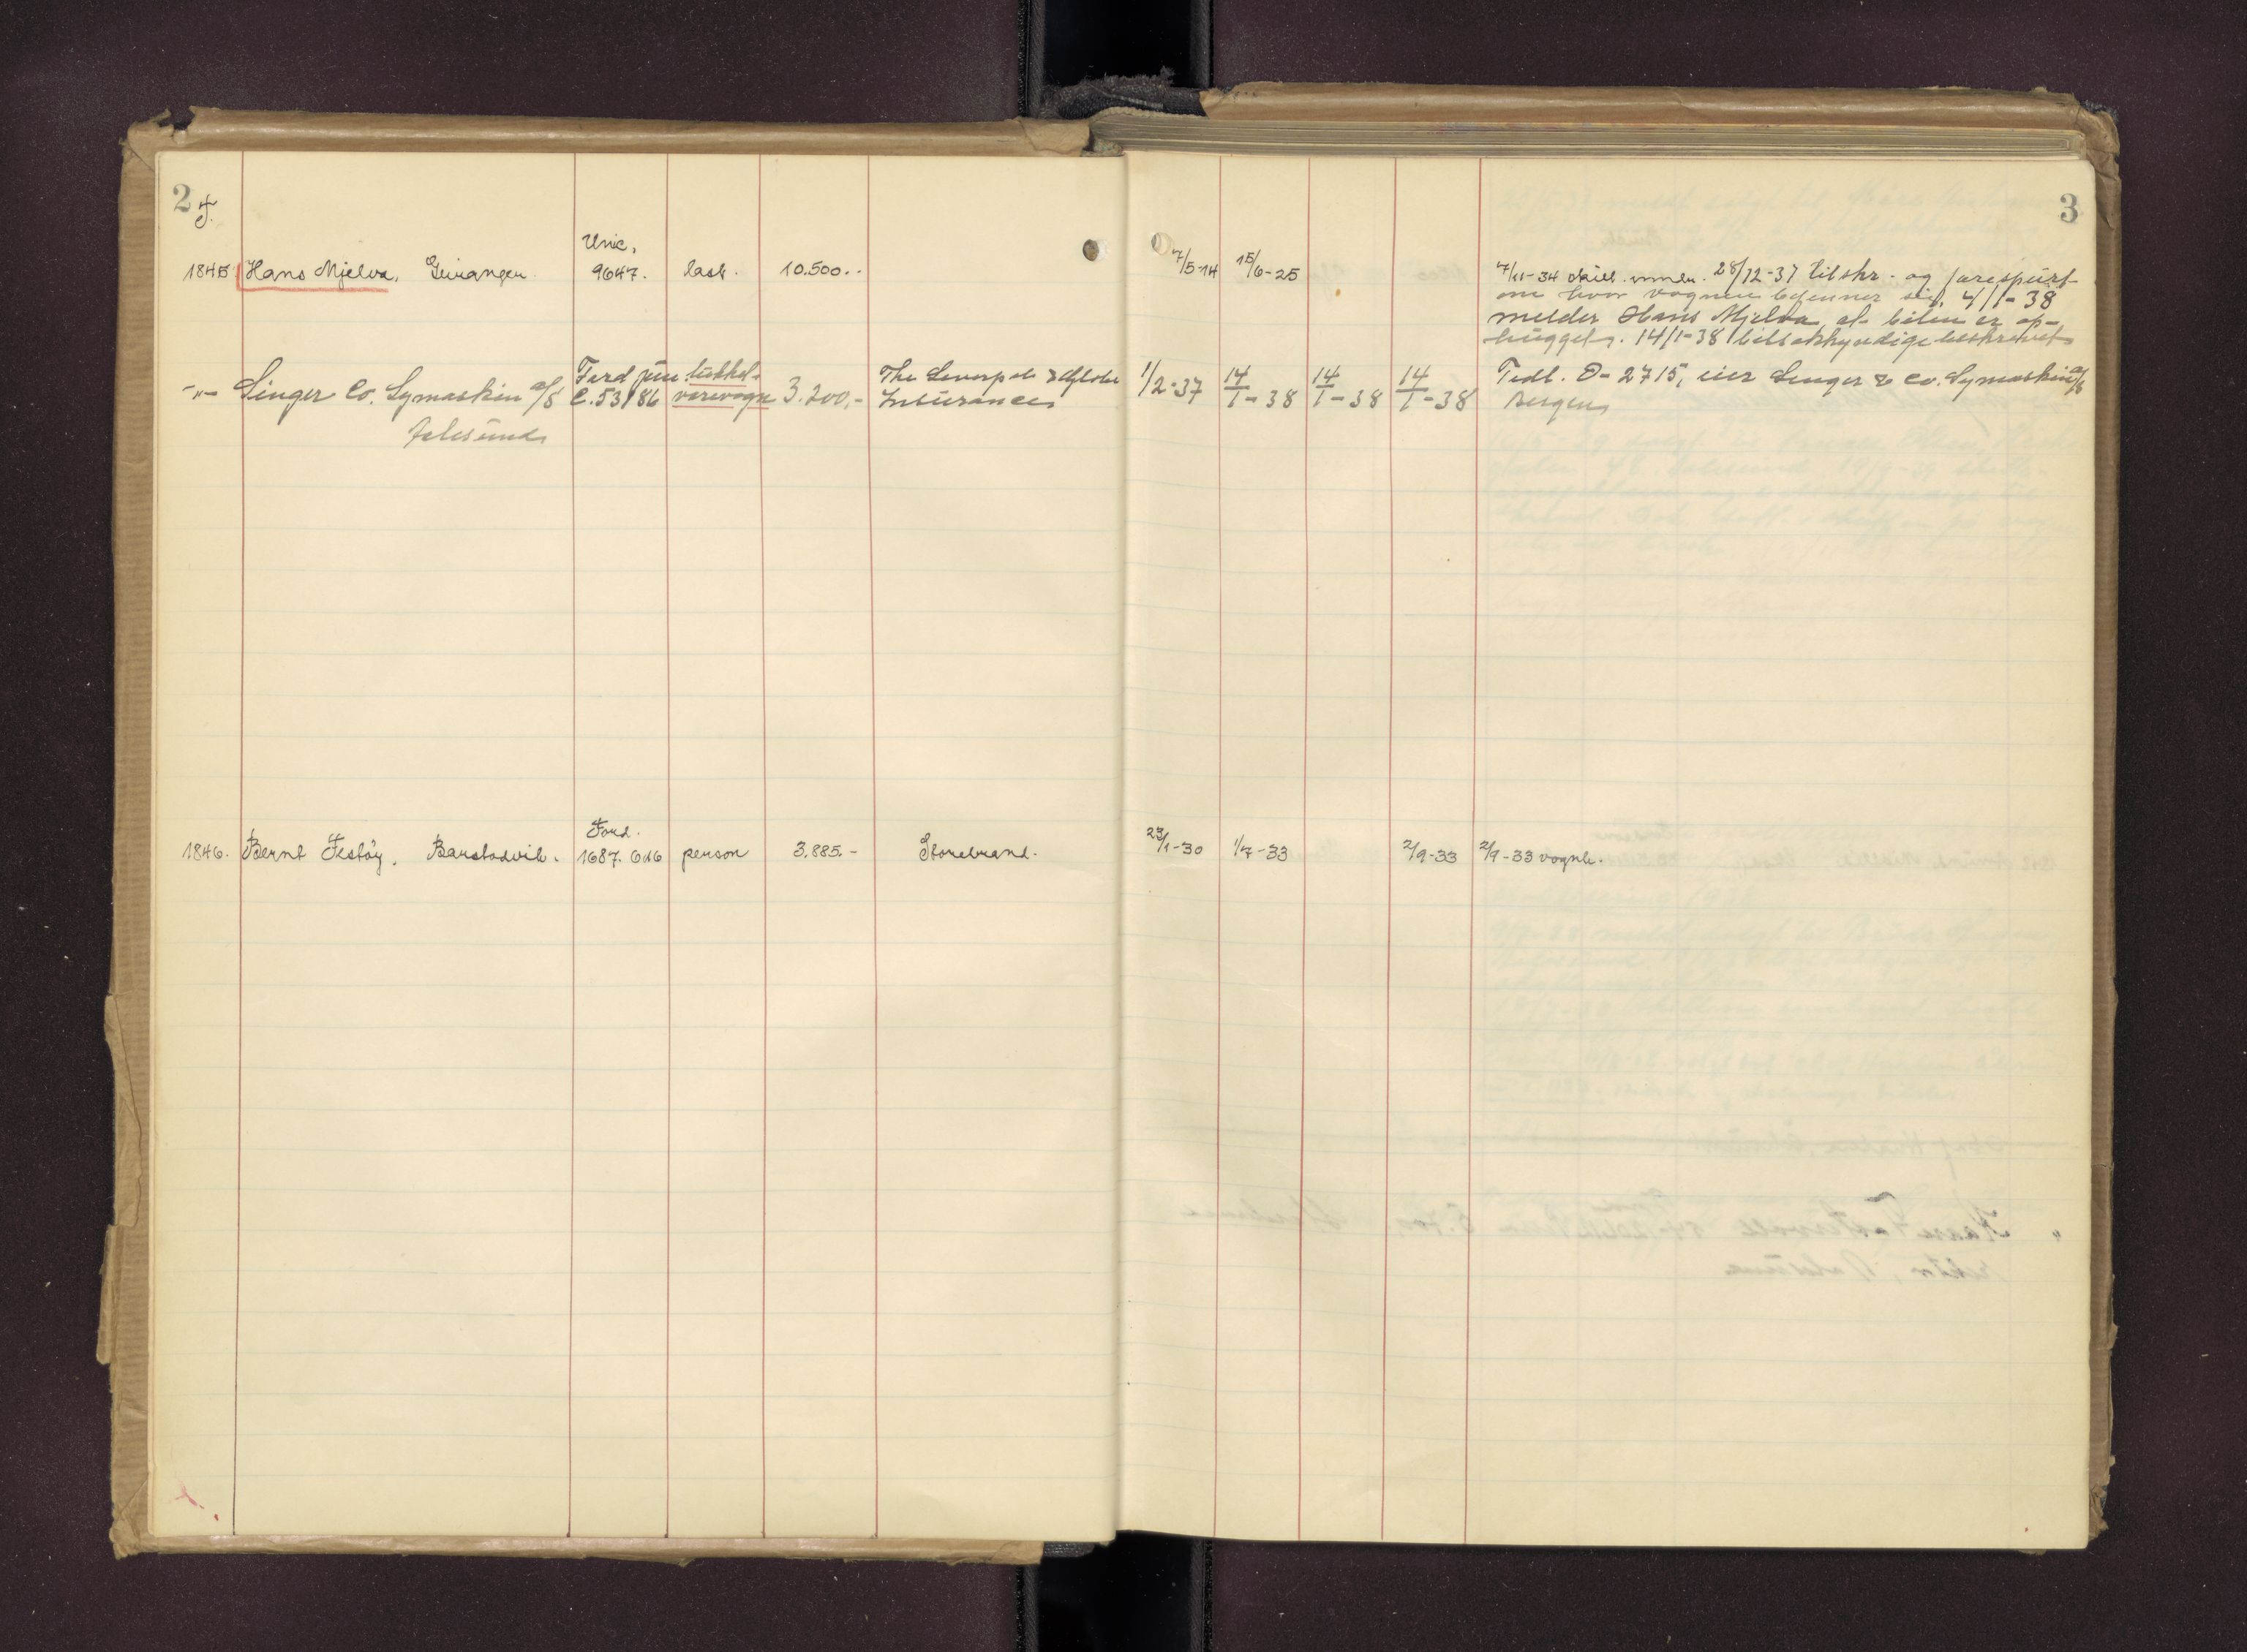 2
T.
1845 Hans Mjelva, Geiranger. Unic, 9647. last. 10.500.- 7/5-14 15/6-25
7/11-34 skilt. innlev. 28/12-37 tilskr. og forespurt
om hvor vognen befinner sig. 4/1-38
melder Hans Mjelva at bilen er op-
hugget. 14/1-38 bilsakkyndige beskrevet
-"- Singer Co. Symaskin A/S Ford jun. lukket 3.200,- The Liverpool & Globe 1/2-37 14/1-38 14/1-38 14/1-38 Tidl. O-2715, eier Singer & Co. Symaskin A/S
C.53186 varevogn Insurance Bergen
Aalesund
1846. Bernt Festöy, Barstadvik. Ford. 1687.616 person 3.885.- Storebrand. 23/1-30 1/7-33 2/9-33 2/9-33 vognk.
3